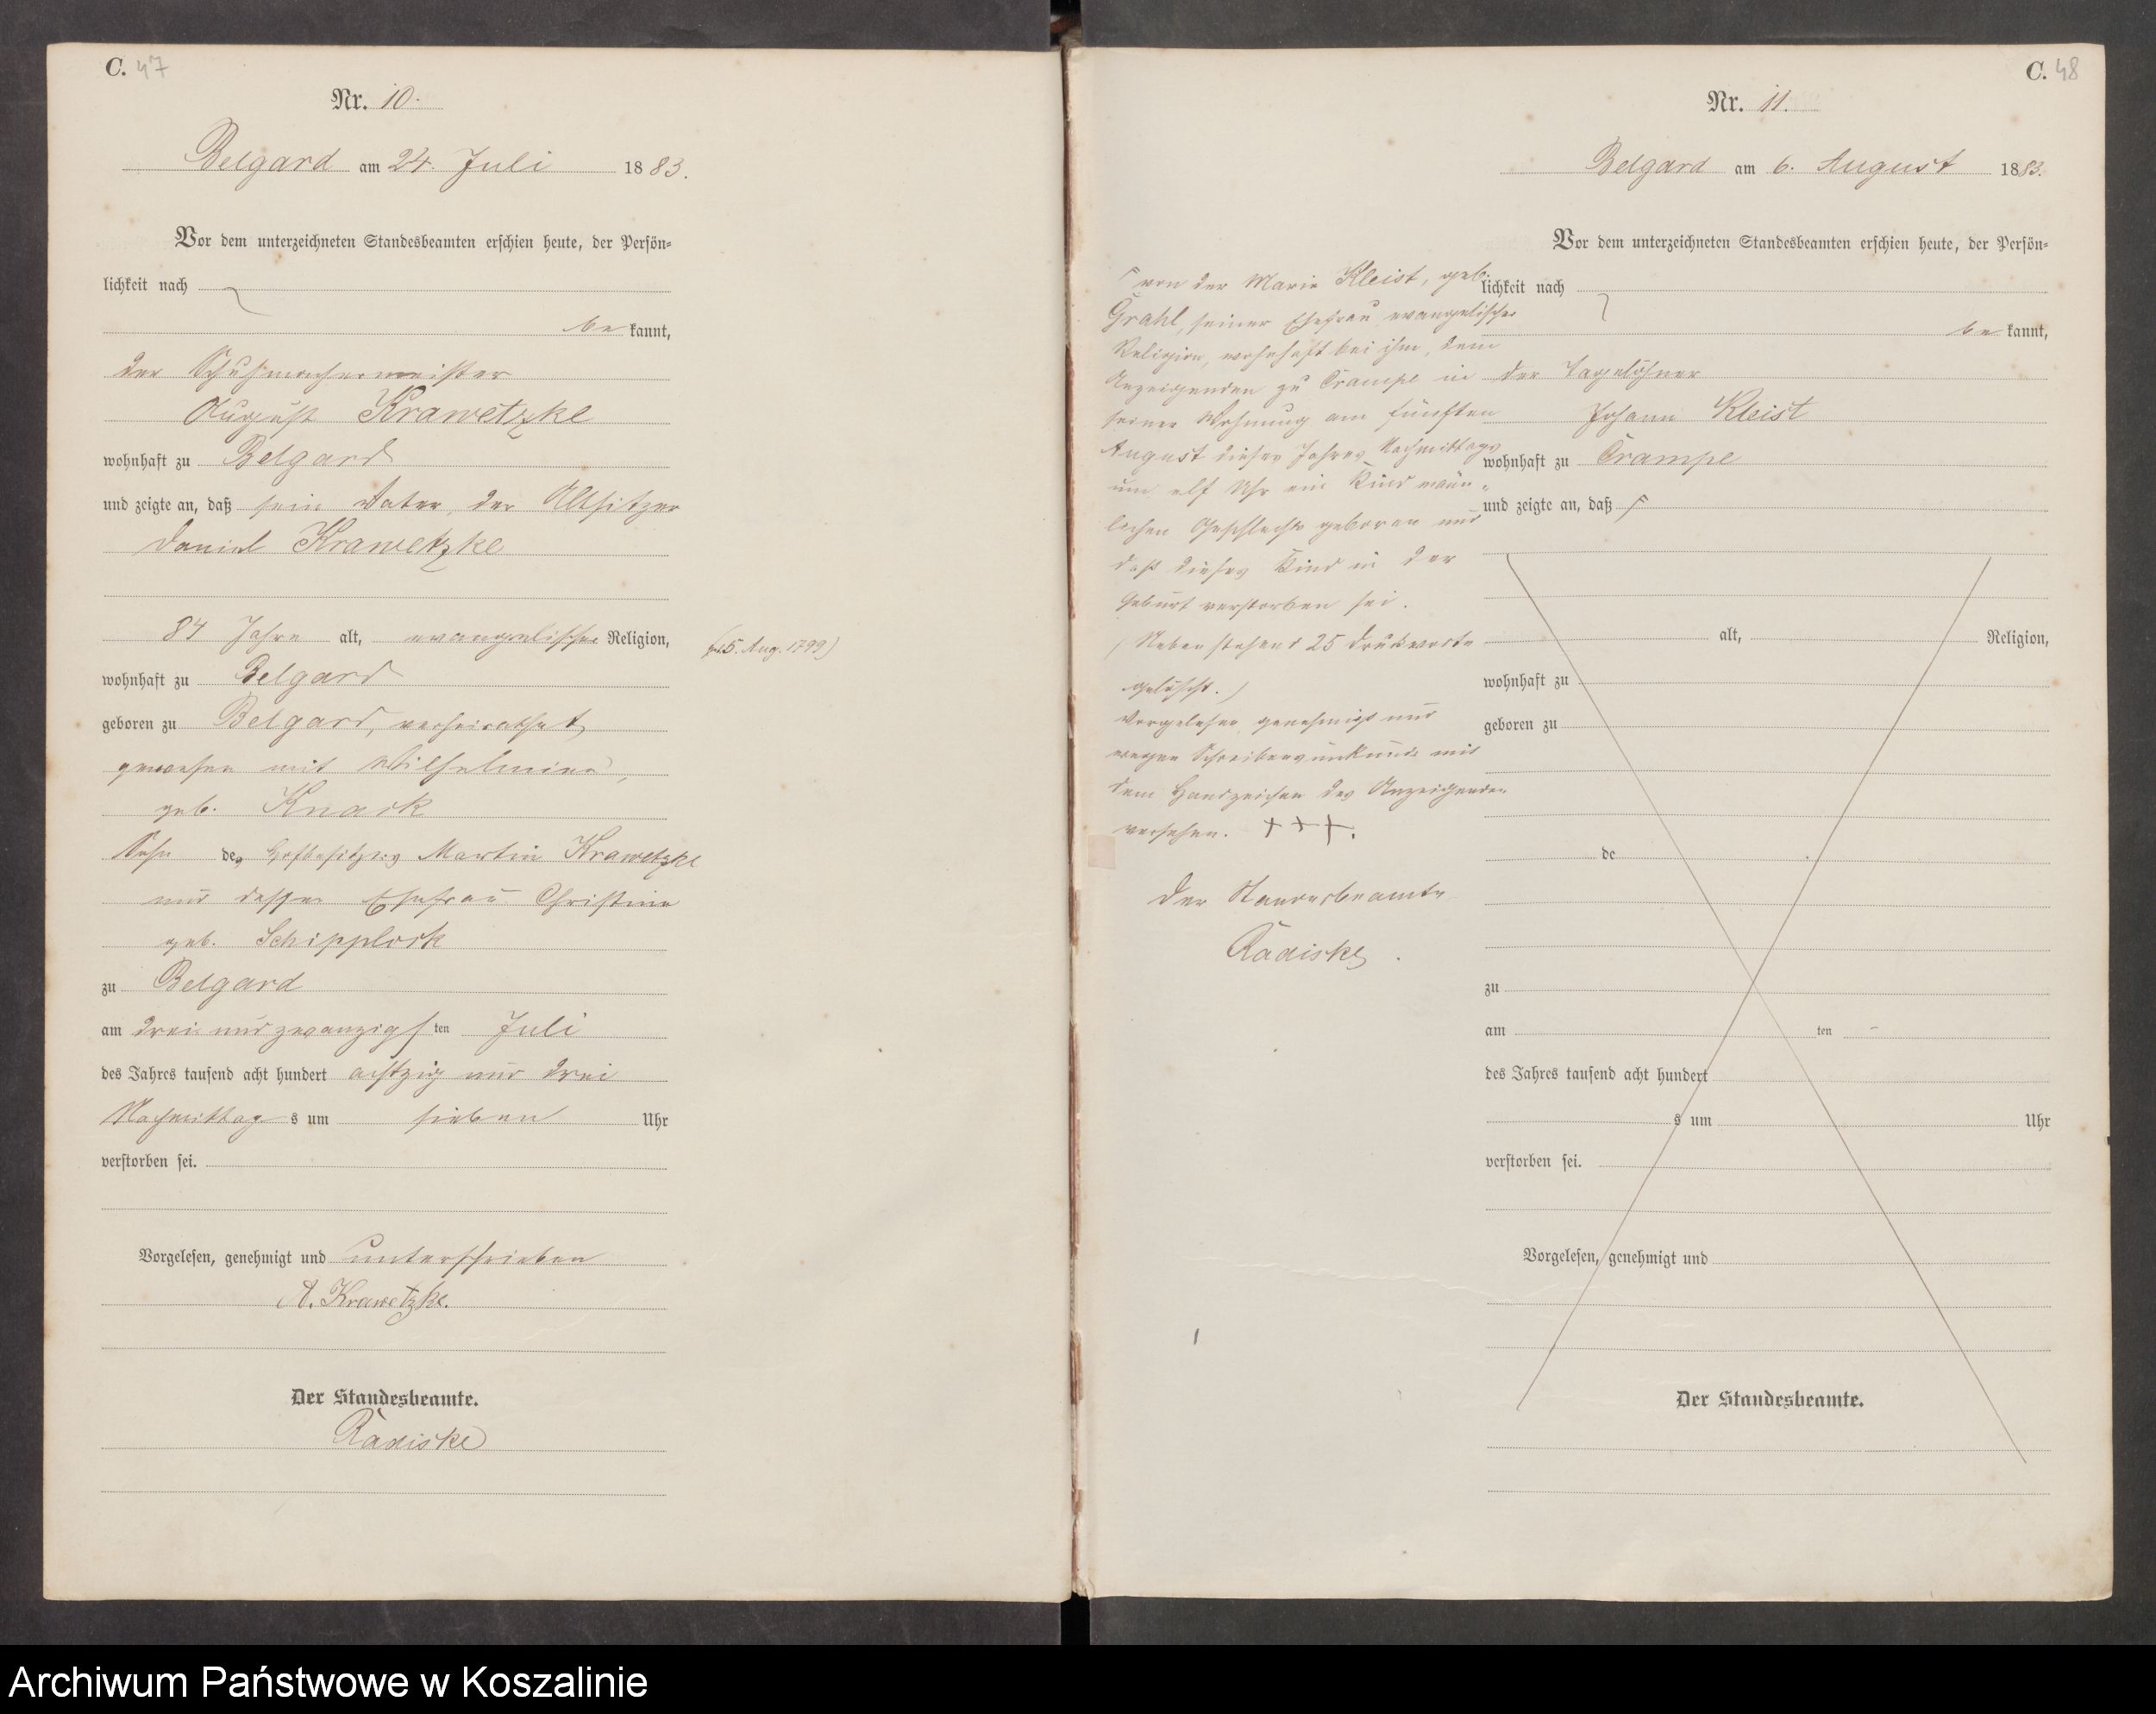 C. 47
Nr. 10.
Belgard am 24. Juli 1883.
Vor dem unterzeichneten Standesbeamten erschien heute, der Persön=
lichkeit nach
be kannt,
der Schuhmachermeister
August Krawetzke
wohnhaft zu Belgard
und zeigte an, daß sein Vater, der Altsitzer
Daniel Krawetzke
84 Jahre alt, evangelischer Religion,
(15. Aug. 1799)
wohnhaft zu Belgard
geboren zu Belgard, verheirathet
gewesen mit Wilhelmine,
geb. Knack
Sohn des Hofbesitzers Martin Krawetzke
und dessen Ehefrau Christine
geb. Schipplock
zu Belgard
am drei und zwanzigsten Juli
des Jahres tausend acht hundert achtzig und drei
Nachmittags um sieben Uhr
verstorben sei.
Vorgelesen, genehmigt und unterschrieben
A. Krawetzke.
Der Standesbeamte.
Radiske
C. 48
Nr. 11.
Belgard am 6. August 1883.
Vor dem unterzeichneten Standesbeamten erschien heute, der Persön=
lichkeit nach
be kannt,
der Tagelöhner
Johann Kleist
wohnhaft zu Crampe
und zeigte an, daß
von der Marie Kleist, geb.
Grahl, seiner Ehefrau evangelischer
Religion, wohnhaft bei ihm, dem
Anzeigenden zu Crampe in
seiner Wohnung am fünften
August dieses Jahres Nachmittags
um elf Uhr ein Kind männ-
lichen Geschlechts geboren und
daß dieses Kind in der
Geburt verstorben sei.
(Nebenstehend 25 Druckworte
gelöscht.)
Vorgelesen, genehmigt und
wegen Schreibensunkunde mit
dem Handzeichen des Anzeigenden
versehen. +++.
Der Standesbeamte
Radiske.
alt, Religion,
wohnhaft zu
geboren zu
de
zu
am ten
des Jahres tausend acht hundert
s um Uhr
verstorben sei.
Vorgelesen, genehmigt und
Der Standesbeamte.
Archiwum Państwowe w Koszalinie